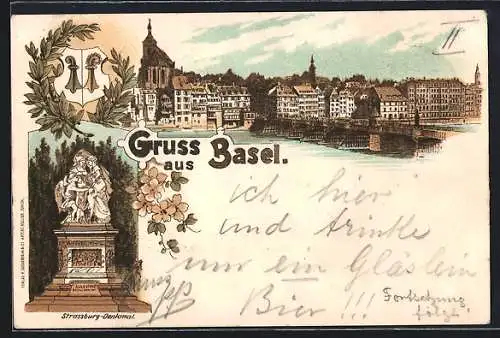 II
Gruss
aus
Basel.
ich hier
und trinke
nur ein Gläslein
Bier !!!
Fortsetzung
folgt.
Strassburg-Denkmal.